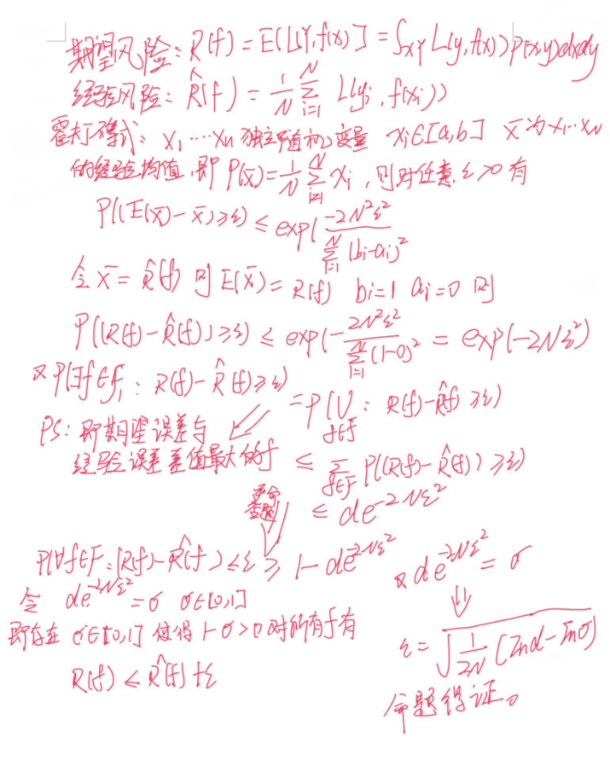 期望风险: R(f) = E[L(Y,f(x))] = ∫xy L(y,f(x))P(x,y)dxdy
经验风险: R̂(f) = 1/N Σ_{i=1}^{N} L(yi, f(xi))
霍夫丁不等式: x1…xn 独立随机变量 xi∈[a,b] x̄为x1…xN
的经验均值,即P(x̄)=1/N Σ_{i=1}^{N} xi, 则对任意ε>0有
P((E(x̄)-x̄)≥ε) ≤ exp(-2N²ε² / Σ_{i=1}^{N}(bi-ai)²
令x̄=R̂(f) 则E(x̄)=R(f) bi=1 ai=0 则
P((R(f)-R̂(f))≥ε) ≤ exp(-2N²ε² / Σ_{i=1}^{N}(1-0)² = exp(-2Nε²)
又P(∃f∈f, : R(f)-R̂(f)≥ε)
=P(∪_{f∈F} : R(f)-R̂(f)≥ε)
PS: 即期望误差与
经验误差差值最大的f
≤ Σ_{f∈F} P((R(f)-R̂(f))≥ε)
≤ de^{-2Nε²}
P(∀f∈F:(R(f)-R̂(f)<ε ≥ 1-de^{-2Nε²}
令 de^{-2Nε²}=σ σ∈[0,1]
即存在 σ∈[0,1] 使得 1-σ>0 对所有f有
R(f) ≤ R̂(f)+ε
又de^{-2Nε²} = σ
⇓
ε=√(1/2N (lnd-lnσ)
命题得证。